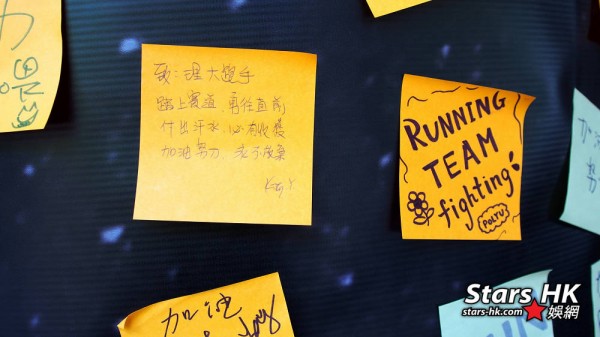 力
致：理大選手
踏上賽道,勇往直前
付出汗水,必有收穫
加油努力,永不放棄
Kay Y
RUNNING
TEAM
fighting
POLYU
加油
加油
努
Stars HK
stars-hk.com 娛網